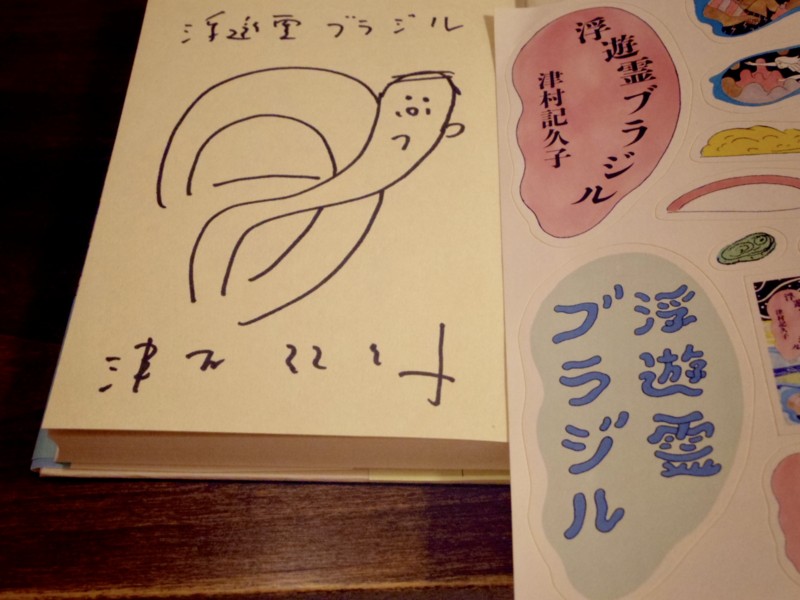 浮遊霊ブラジル
浮遊霊ブラジル
津村記久子
浮遊霊
ブラジル
津村記久子